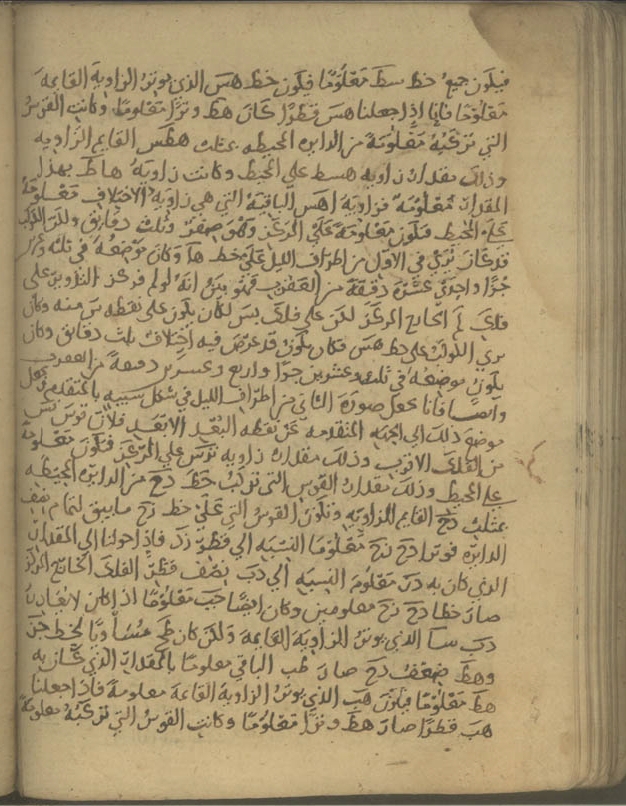 فيكون جميع خط سط معلومًا فيكون خط هس الذي يوتر الزاوية القايمة
معلومًا فانا اذا جعلنا هس قطرًا كان هط وترًا معلومًا وكانت القوس
التي تركبه معلومة من الدايره المحيطه بمثلث هطس القايم الزاويه
وذلك مقدار زاويه هسط على المحيط وكانت زاوية هاط بهذا
المقدار معلومة فزاوية اهس الباقية التي هي زاوية الاختلاف معلومة
على المحيط فتكون معلومة على المركز وهو صفر وثلث دقايق ولكن الكوكب
قد كان يرى في الاول من اطراف الليل على خط ها وكان موضعه في تلك
جزًا واحدى عشرة دقيقة من العقرب فهو بين انه لو لم فركز التدوير على
فلك لم الخارج المركز لكن على فلك يس لكان يكون على نقطه س منه وكان
يرى الكوكب على خط هس فكان يكون قد عرض فيه اختلاف ثلث دقايق وكان
يكون موضعه في ثلث وعشرين جزًا واربع وعشرين دقيقة من العقرب
وايضا فانا نجعل صورة الثاني من اطراف الليل في شكل شبيه بالمتقدم
موضع ذلك الى الجهه المتقدمه عن نقطه البعد الابعد فلان قوس نس
من الفلك الاقرب وذلك مقدار زاويه نزس على المركز فتكون معلومة
على المحيط وذلك مقدار القوس التي تركب خط دح من الدايره المحيطه
بمثلث دزح القايم الزاويه وتكون القوس التي على خط زح ما يبقى لتمام نصف
الدايره فوترا دح زح معلوما النسبه الى قطر زد فاذا حولنا الى المقدار
الذي كان به دز معلوم النسبه الى دب نصف قطر الفلك الخارج المركز
صار خطا دح زح معلومين وكان ايضًا حب معلومًا اذ كان
دب الذي يوتر الزاوية القايمه ولكن كان طح مثساويًا لخط حز
وهط ضعف دح صار طب الباقي معلومًا بالمقدار الذي كان به
هط معلومًا فيكون هب الذي يوتر الزاوية القايمة معلومة فاذا جعلنا
هب قطرًا صار هط وترًا معلومًا وكانت القوس التي تركبه معلومة